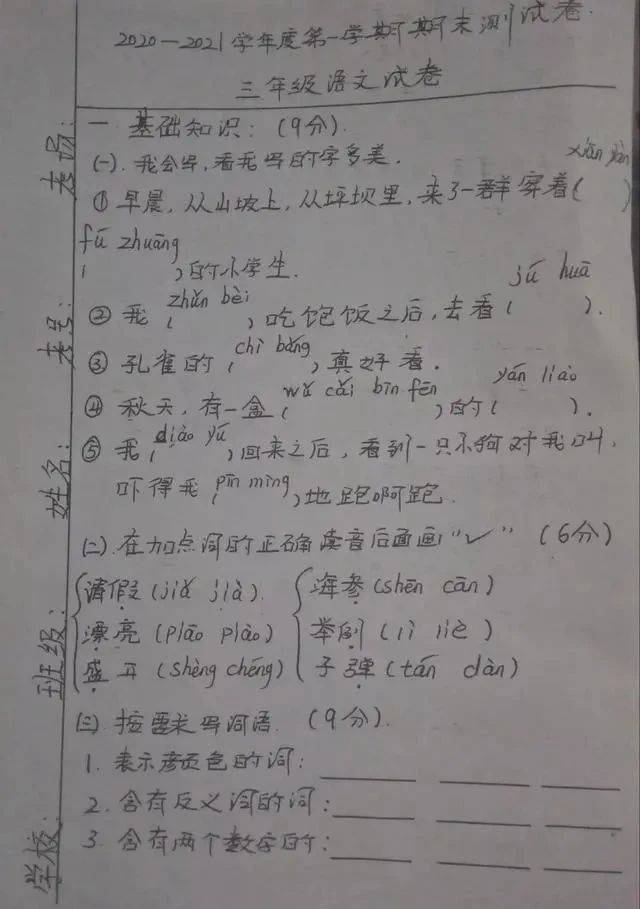 2020—2021学年度第一学期期末测试卷.
三年级语文试卷
一 基础知识：（9分）.
(一). 我会写，看我写的字多美.
xiān yàn
① 早晨，从山坡上，从坪坝里，来了一群穿着（ ）
fú zhuāng
（ ）的小学生.
zhǔn bèi jú huā
② 我（ ）吃饱饭之后，去看（ ）.
chì bǎng
③ 孔雀的（ ）真好看.
wǔ cǎi bīn fēn yán liào
④ 秋天，有一盒（ ）的（ ）.
diào yú
⑤ 我（ ）回来之后，看到一只小狗对我叫，
pīn mìng
吓得我（ ）地跑啊跑.
(二). 在加点词的正确读音后面画“✓”（6分）
请假（jiǎ jià） 海参（shēn cān）
漂亮（piāo piào） 举例（lì liè）
盛开（shèng chéng） 子弹（tán dàn）
(三) 按要求写词语.（9分）.
1. 表示颜色的词：
2. 含有反义词的词：
3. 含有两个数字的：
学校： 班级： 姓名： 考号： 考场：